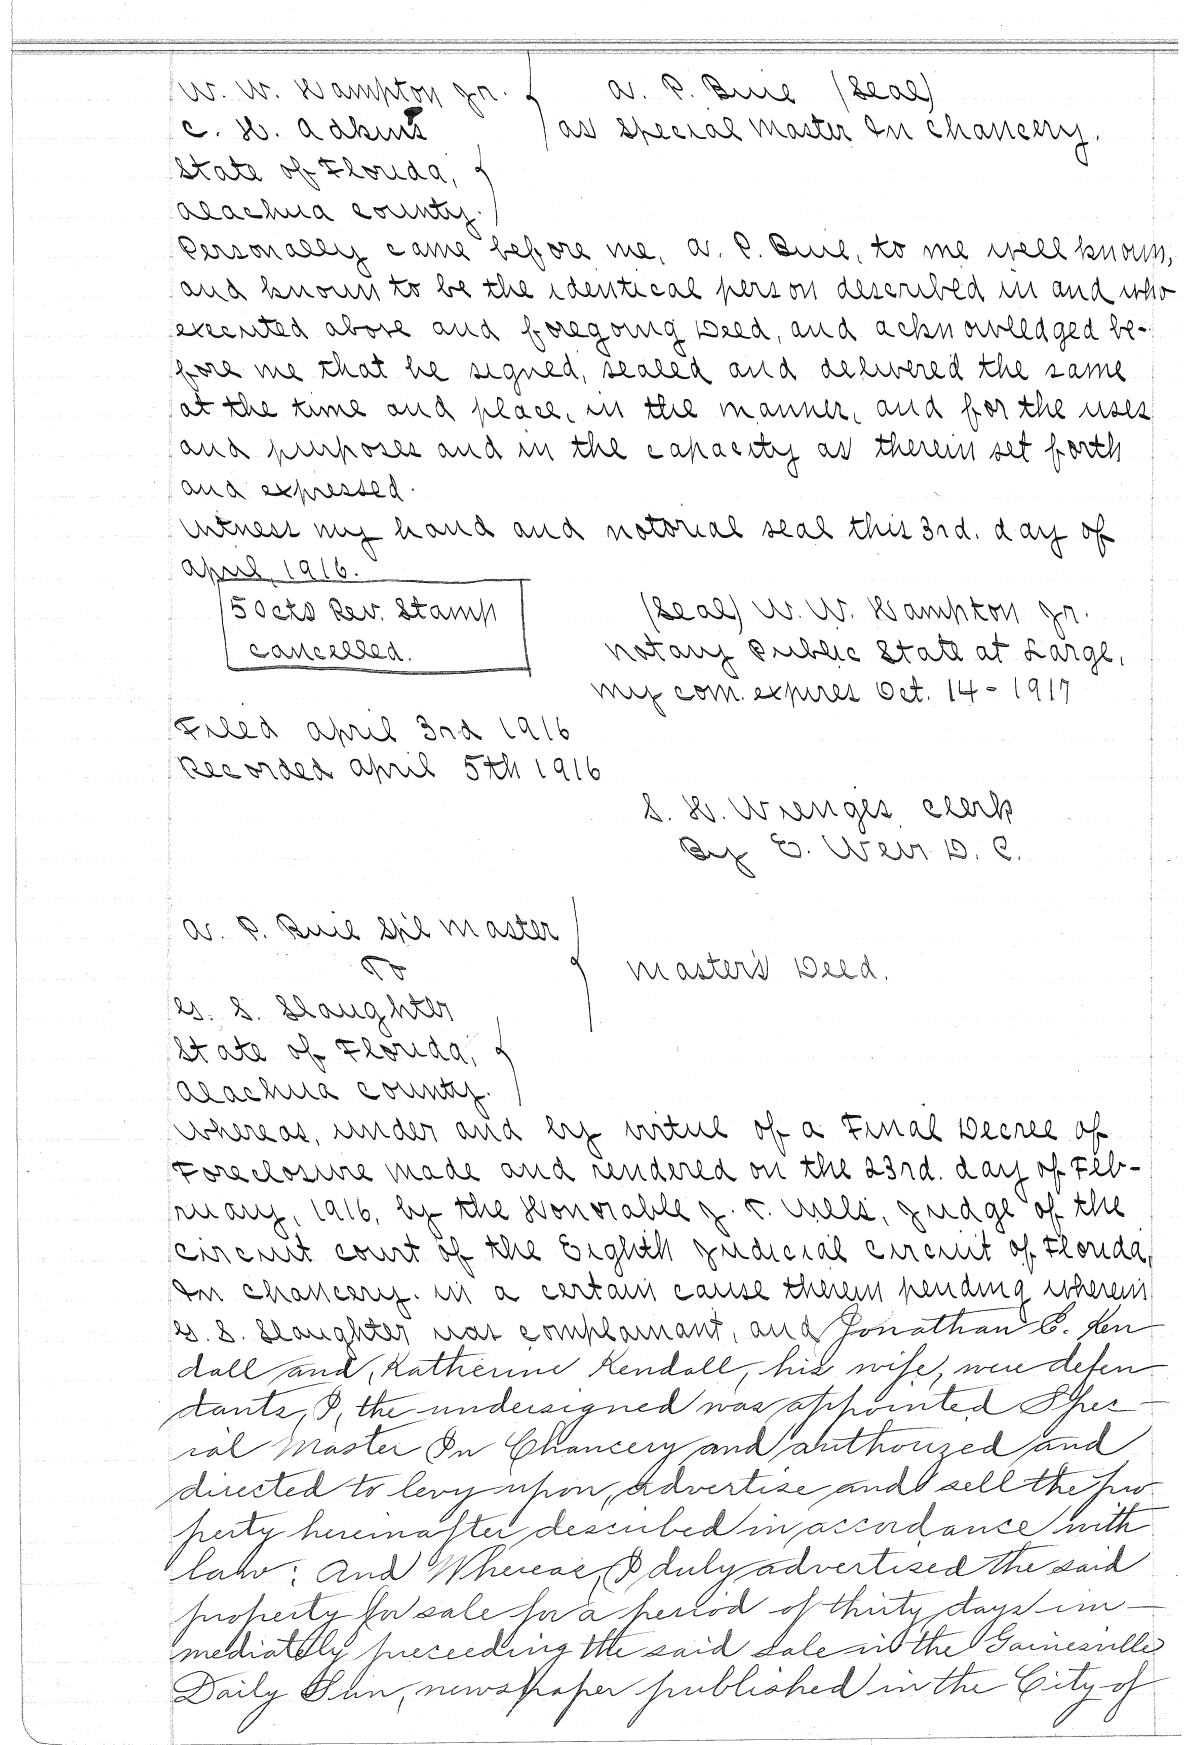 W. W. Hampton Jr. A. P. Buie (Seal)
C. H. Adkins as Special Master In Chancery.
State of Florida,
Alachua County.
Personally came before me, A. P. Buie, to me well known,
and known to be the identical person described in and who
executed above and foregoing Deed, and acknowledged be-
fore me that he signed, sealed and delivered the same
at the time and place, in the manner, and for the uses
and purposes and in the capacity as therein set forth
and expressed.
Witness my hand and notorial seal this 3rd. day of
April, 1916.
50cts Rev. Stamp (Seal) W. W. Hampton Jr.
cancelled. Notary Public State at Large,
My com. expires Oct. 14 - 1917
Filed April 3rd 1916
Recorded April 5th 1916
S. H. Wienges, Clerk
By E. Weir D. C.
A. P. Buie Spl Master
To Masters Deed.
G. S. Slaughter
State of Florida,
Alachua County.
Whereas, under and by virtue of a Final Decree of
Foreclosure made and rendered on the 23rd. day of Feb-
ruary, 1916, by the Honorable J. T. Wills, Judge of the
Circuit Court of the Eighth Judicial Circuit of Florida,
In Chancery. in a certain cause therein pending wherein
G. S. Slaughter was complainant, and Jonathan C. Ken
dall and, Katherine Kendall, his wife, were defen
dants, I, the undersigned was appointed Spec-
ial Master In Chancery and authorized and
directed to levy upon, advertise and sell the pro
perty hereinafter described in accordance with
law; And Whereas, I duly advertised the said
property for sale for a period of thirty days im-
mediately preceeding the said sale in the Gainesville
Daily Sun, newspaper published in the City of